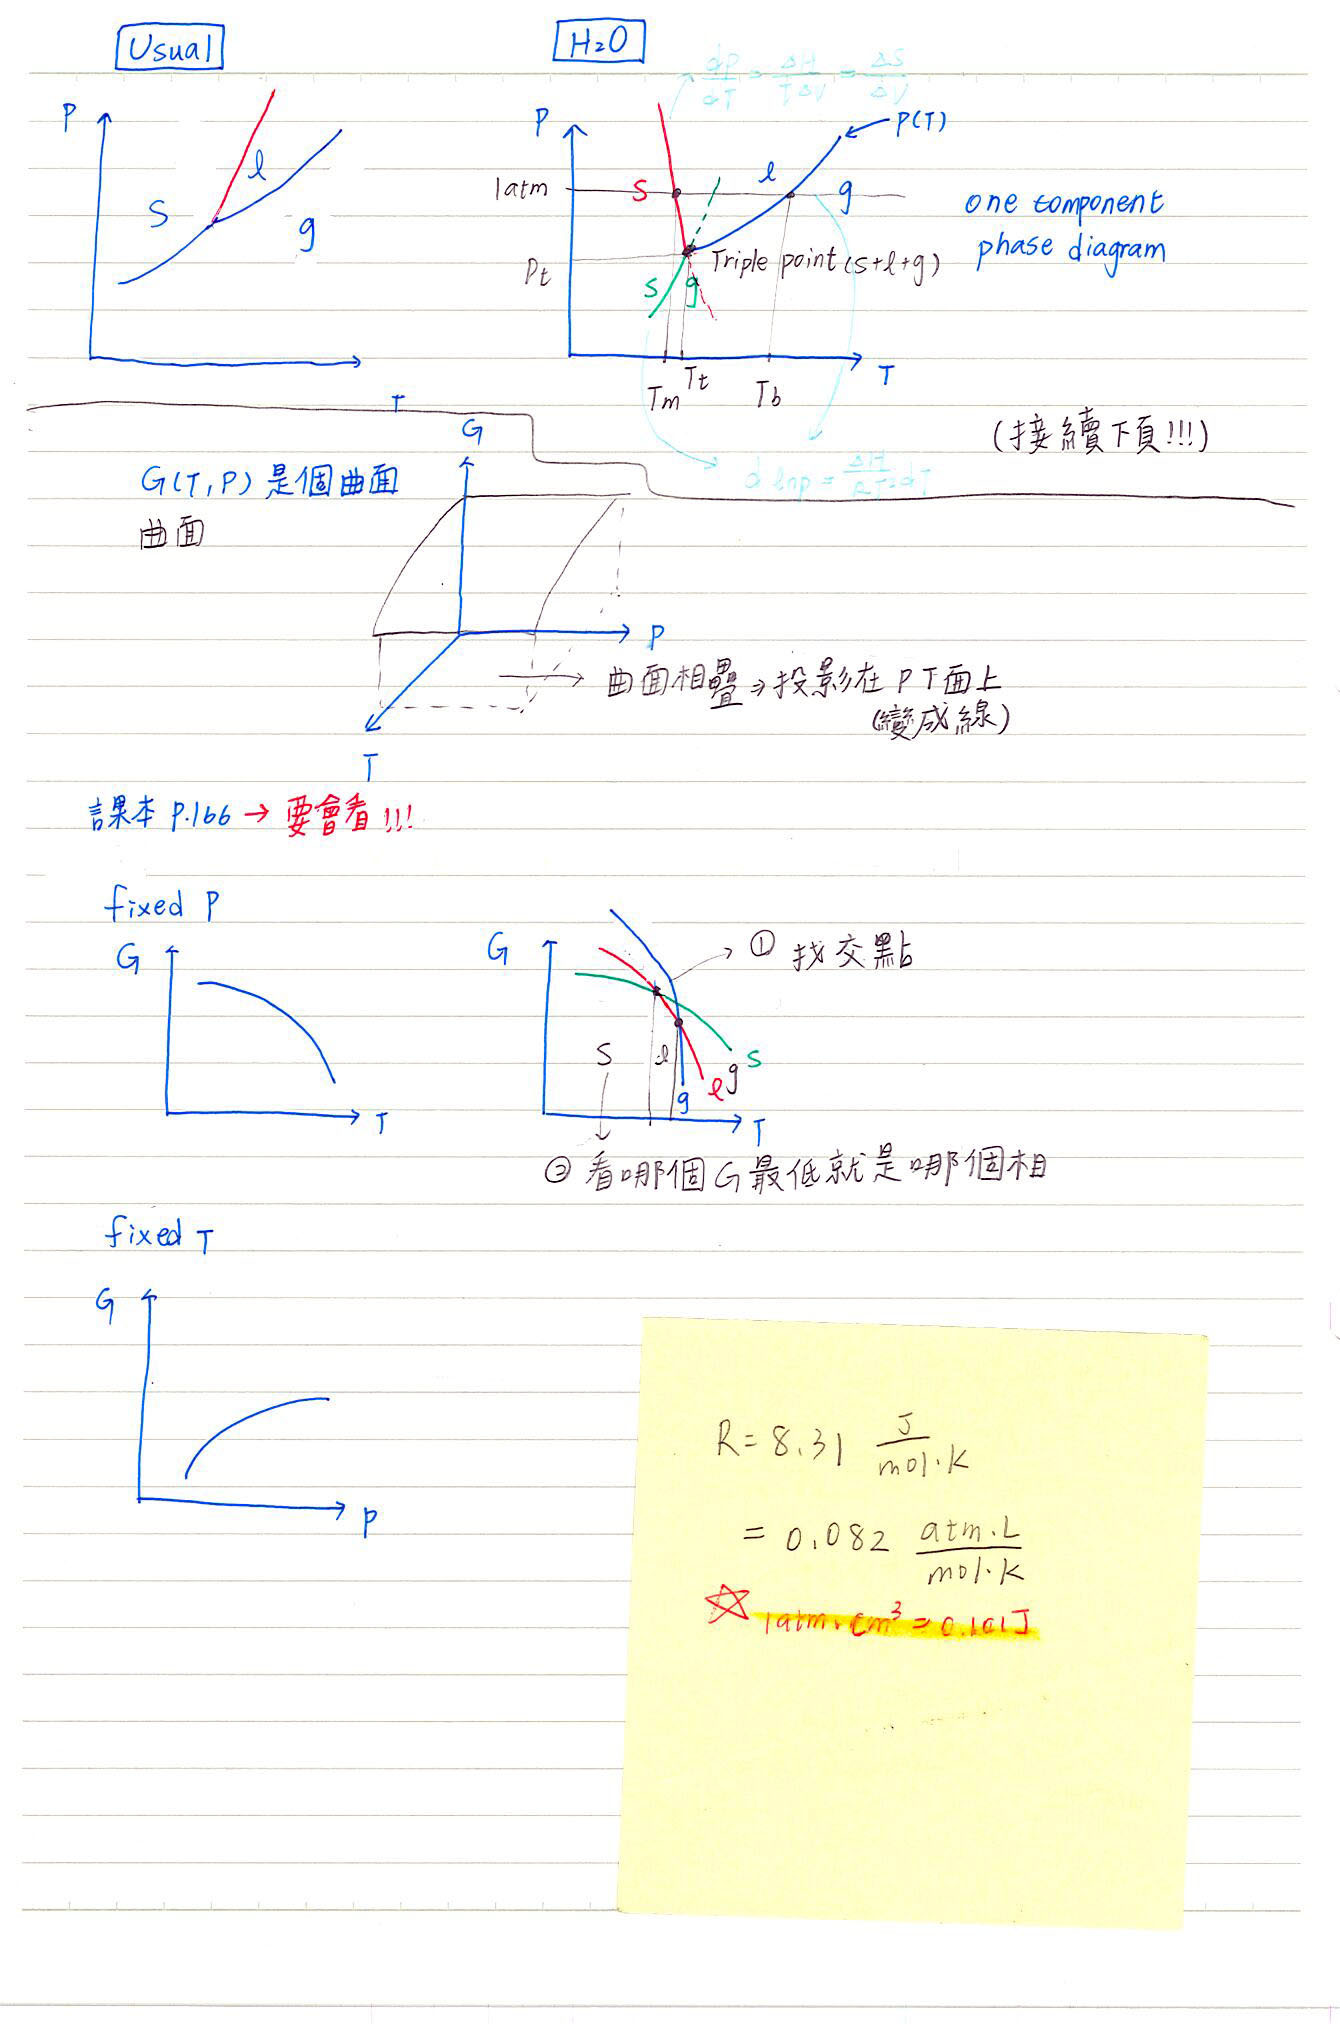 Usual
H₂O
dP/dT = ΔH/TΔV = ΔS/ΔV
P
s
l
g
T
P
P(T)
1atm
s
l
g
one component
phase diagram
Pt
Triple point (s+l+g)
s
g
Tm
Tt
Tb
T
(接續下頁!!!)
d lnp = ΔH/RT² dT
G(T,P) 是個曲面
曲面
G
P
T
曲面相疊⇒投影在PT面上
(變成線)
課本 P.166 → 要會看!!!
fixed P
G
T
G
① 找交點
s
l
s
g
l
g
T
② 看哪個G最低就是哪個相
fixed T
G
P
R = 8.31 J/mol·K
= 0.082 atm·L/mol·K
☆ 1atm·cm³ = 0.101J